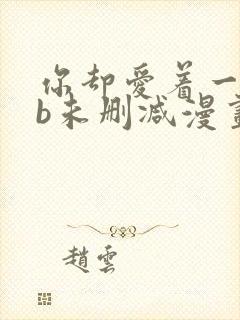 你却爱着一
b未删减漫畫
趙雲